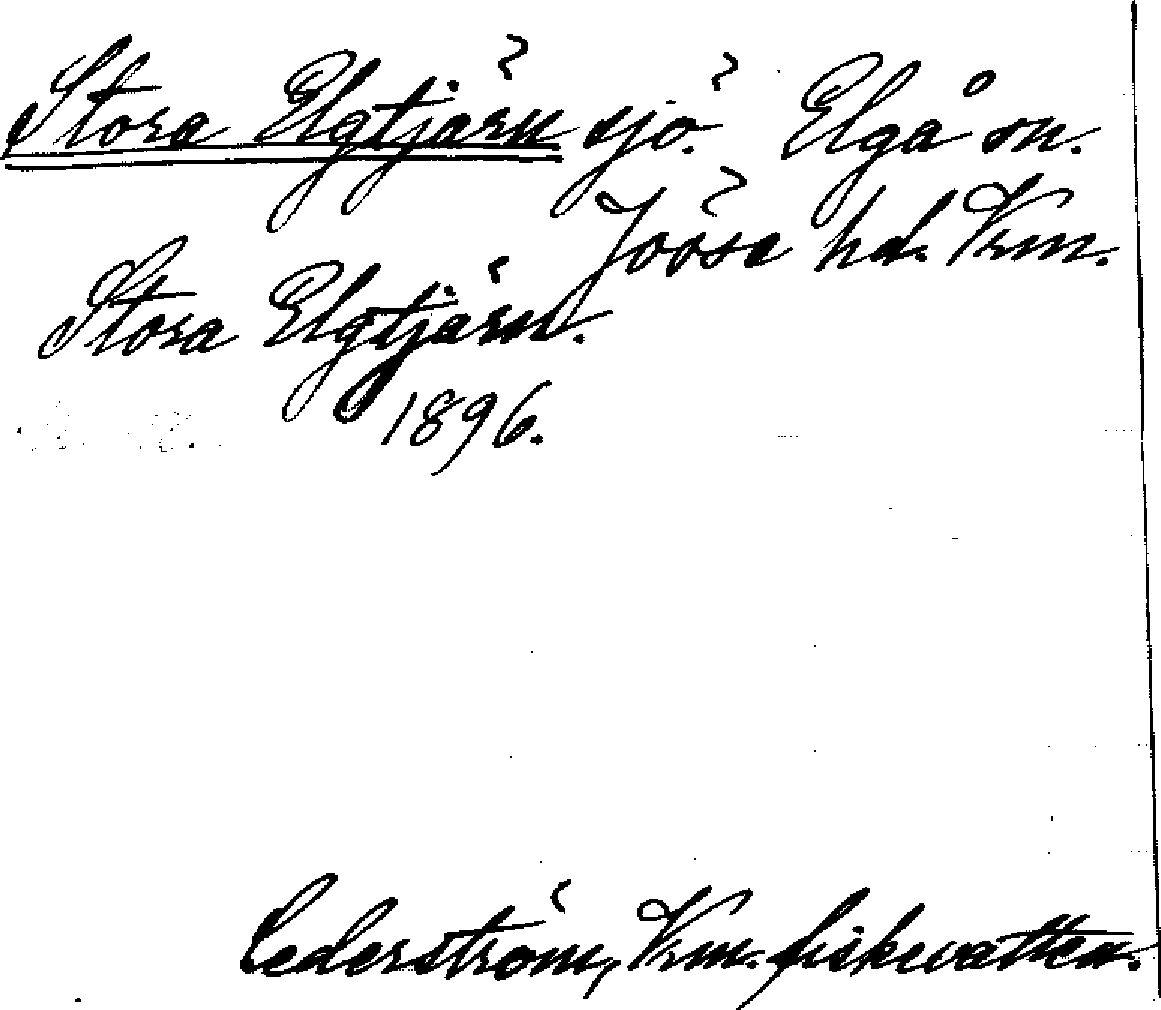 Stora Elgtjärn sjö. Elgå sn.
Jösse hd. Vrm.
Stora Elgtjärn.
1896.
Cederström, Vrm. fiskevatten.